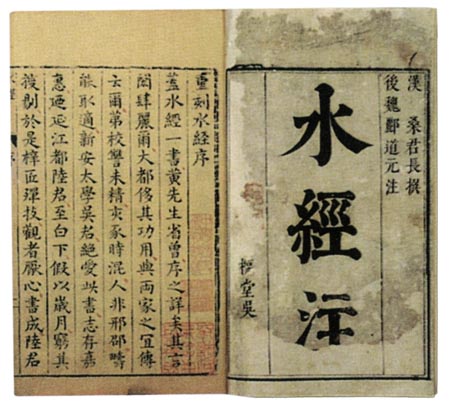 漢 桑君長撰
後魏酈道元注
水經注
堂吳
重刻水經序
蓋水經一書黄先生省曾序之詳矣其言
閎肆麗爾大都侈其功用與両家之宜傳
云爾第校讐未精亥豕時混人非邢邵疇
能取適新安太學吳君絶愛此書志存嘉
惠迺延江都陸君至白下假以歲月窮其
搜剔於是梓匠殫技觀者厭心書成陸君